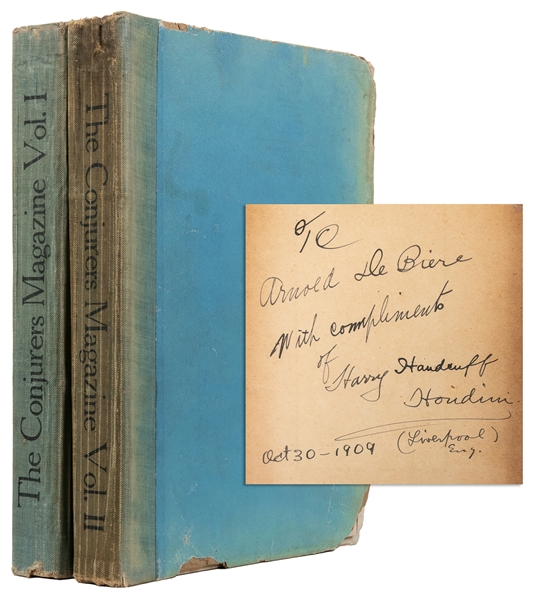 The Conjurers Magazine Vol. I
The Conjurers Magazine Vol. II
To
Arnold De Biere
With compliments
of Harry Handcuff
Houdini.
Oct 30 - 1909 (Liverpool)
Eng.